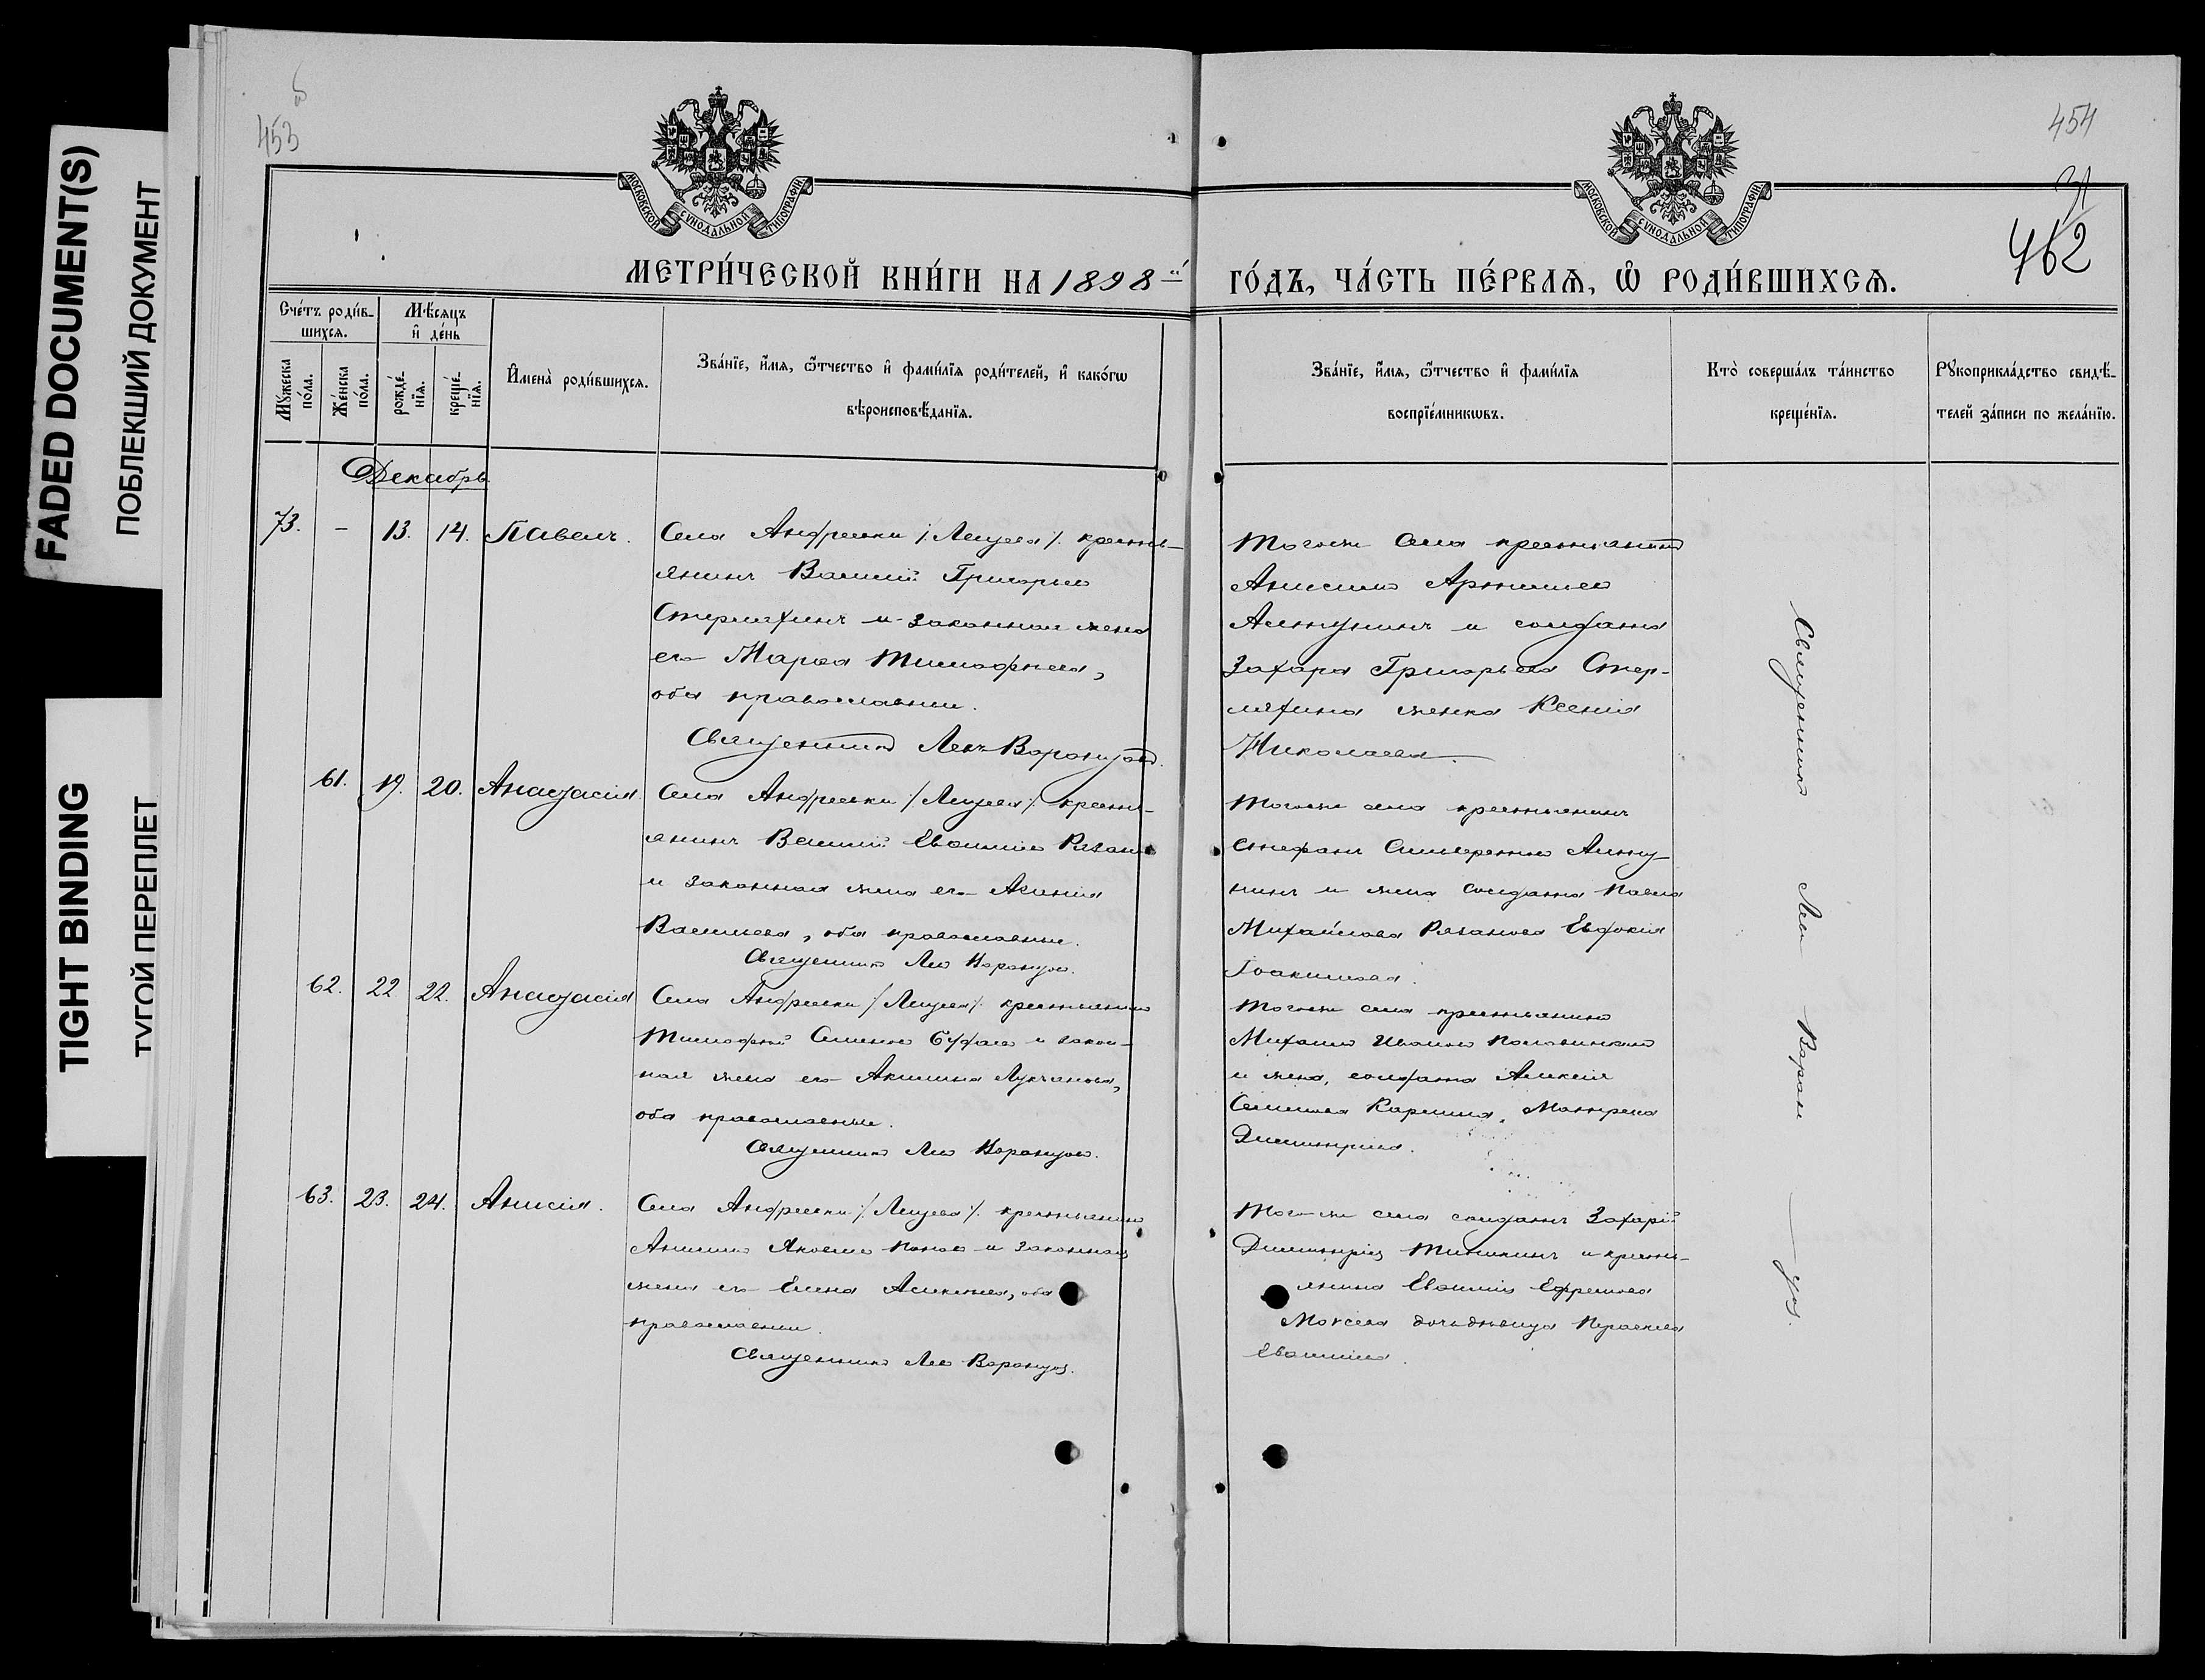 FADED DOCUMENT(S)
ПОБЛЕКШИЙ ДОКУМЕНТ
TIGHT BINDING
ТУГОЙ ПЕРЕПЛЕТ
453
454
31
462
МОСКОВСКОЙ СУНОДАЛЬНОЙ ТИПОГРАФІИ
МОСКОВСКОЙ СУНОДАЛЬНОЙ ТИПОГРАФІИ
МЕТРИ́ЧЕСКОЙ КНИ́ГИ НА 1898й ГО́ДЪ, ЧА́СТЬ ПЕ́РВАѦ, Ѡ҆ РОДИ́ВШИХСѦ.
Сче́тъ роди́в-
шихсѧ.
Мꙋ́жеска
по́ла.
Же́нска
по́ла.
Мѣ́сѧцъ
и҆ де́нь
рожде́-
нїѧ.
креще́-
нїѧ.
И҆мена̀ роди́вшихсѧ.
Зва́нїе, и҆́мѧ, ѻ҆́тчество и҆ фами́лїѧ роди́телей, и҆ како́гѡ
вѣроисповѣ́данїѧ.
Зва́нїе, и҆́мѧ, ѻ҆́тчество и҆ фами́лїѧ
воспрїе́мникѡвъ.
Кто̀ соверша́лъ та́инство
креще́нїѧ.
Рꙋкоприкла́дство свидѣ́-
телей за́писи по жела́нїю.
Декабрь
73. - 13. 14. Павелъ.
Села Андреевки /Лещева/. кресть-
янинъ Василій Григорьев
Стерляхинъ и законная жена
его Марѳа Тимофеева,
оба православные.
Священникъ Левъ Воронцовъ.
Тогоже села крестьянинъ
Анисимъ Артемьев
Алтунинъ и солдата
Захара Григорьева Стер-
ляхина женка Ксенія
Николаева.
61. 19. 20. Анастасія.
Села Андреевки /Лещева/. кресть-
янинъ Василій Евфиміев Рязанов
и законная жена его Агаѳія
Васильева, оба православные.
Священникъ Левъ Воронцов.
Тогоже села крестьянинъ
Стефанъ Алту-
нинъ и жена солдата Павла
Михайлова Рязанова Евдокія
Іоакимова.
62. 22 22. Анастасія
Села Андреевки /Лещева/. крестьянинъ
Тимофей Семенов и закон-
ная жена его Акилина Лукьянова,
оба православные.
Священникъ Левъ Воронцов.
Тогоже села крестьянинъ
Михаилъ Иванов
и жена, солдата Алексія
Семенова Карпина, Матрена
Димитріева.
63. 23. 24. Анисія.
Села Андреевки /Лещева/. крестьянинъ
Анисимъ Яковлев Попов и законная
жена его Елена Алексеева, оба
православные.
Священникъ Левъ Воронцов.
Тогоже села солдатъ Захарій
Димитріев и кресть-
янина Евфимія Ефремова
дочь девица Параскева
Евфимиева.
Священникъ Левъ Воронцов.